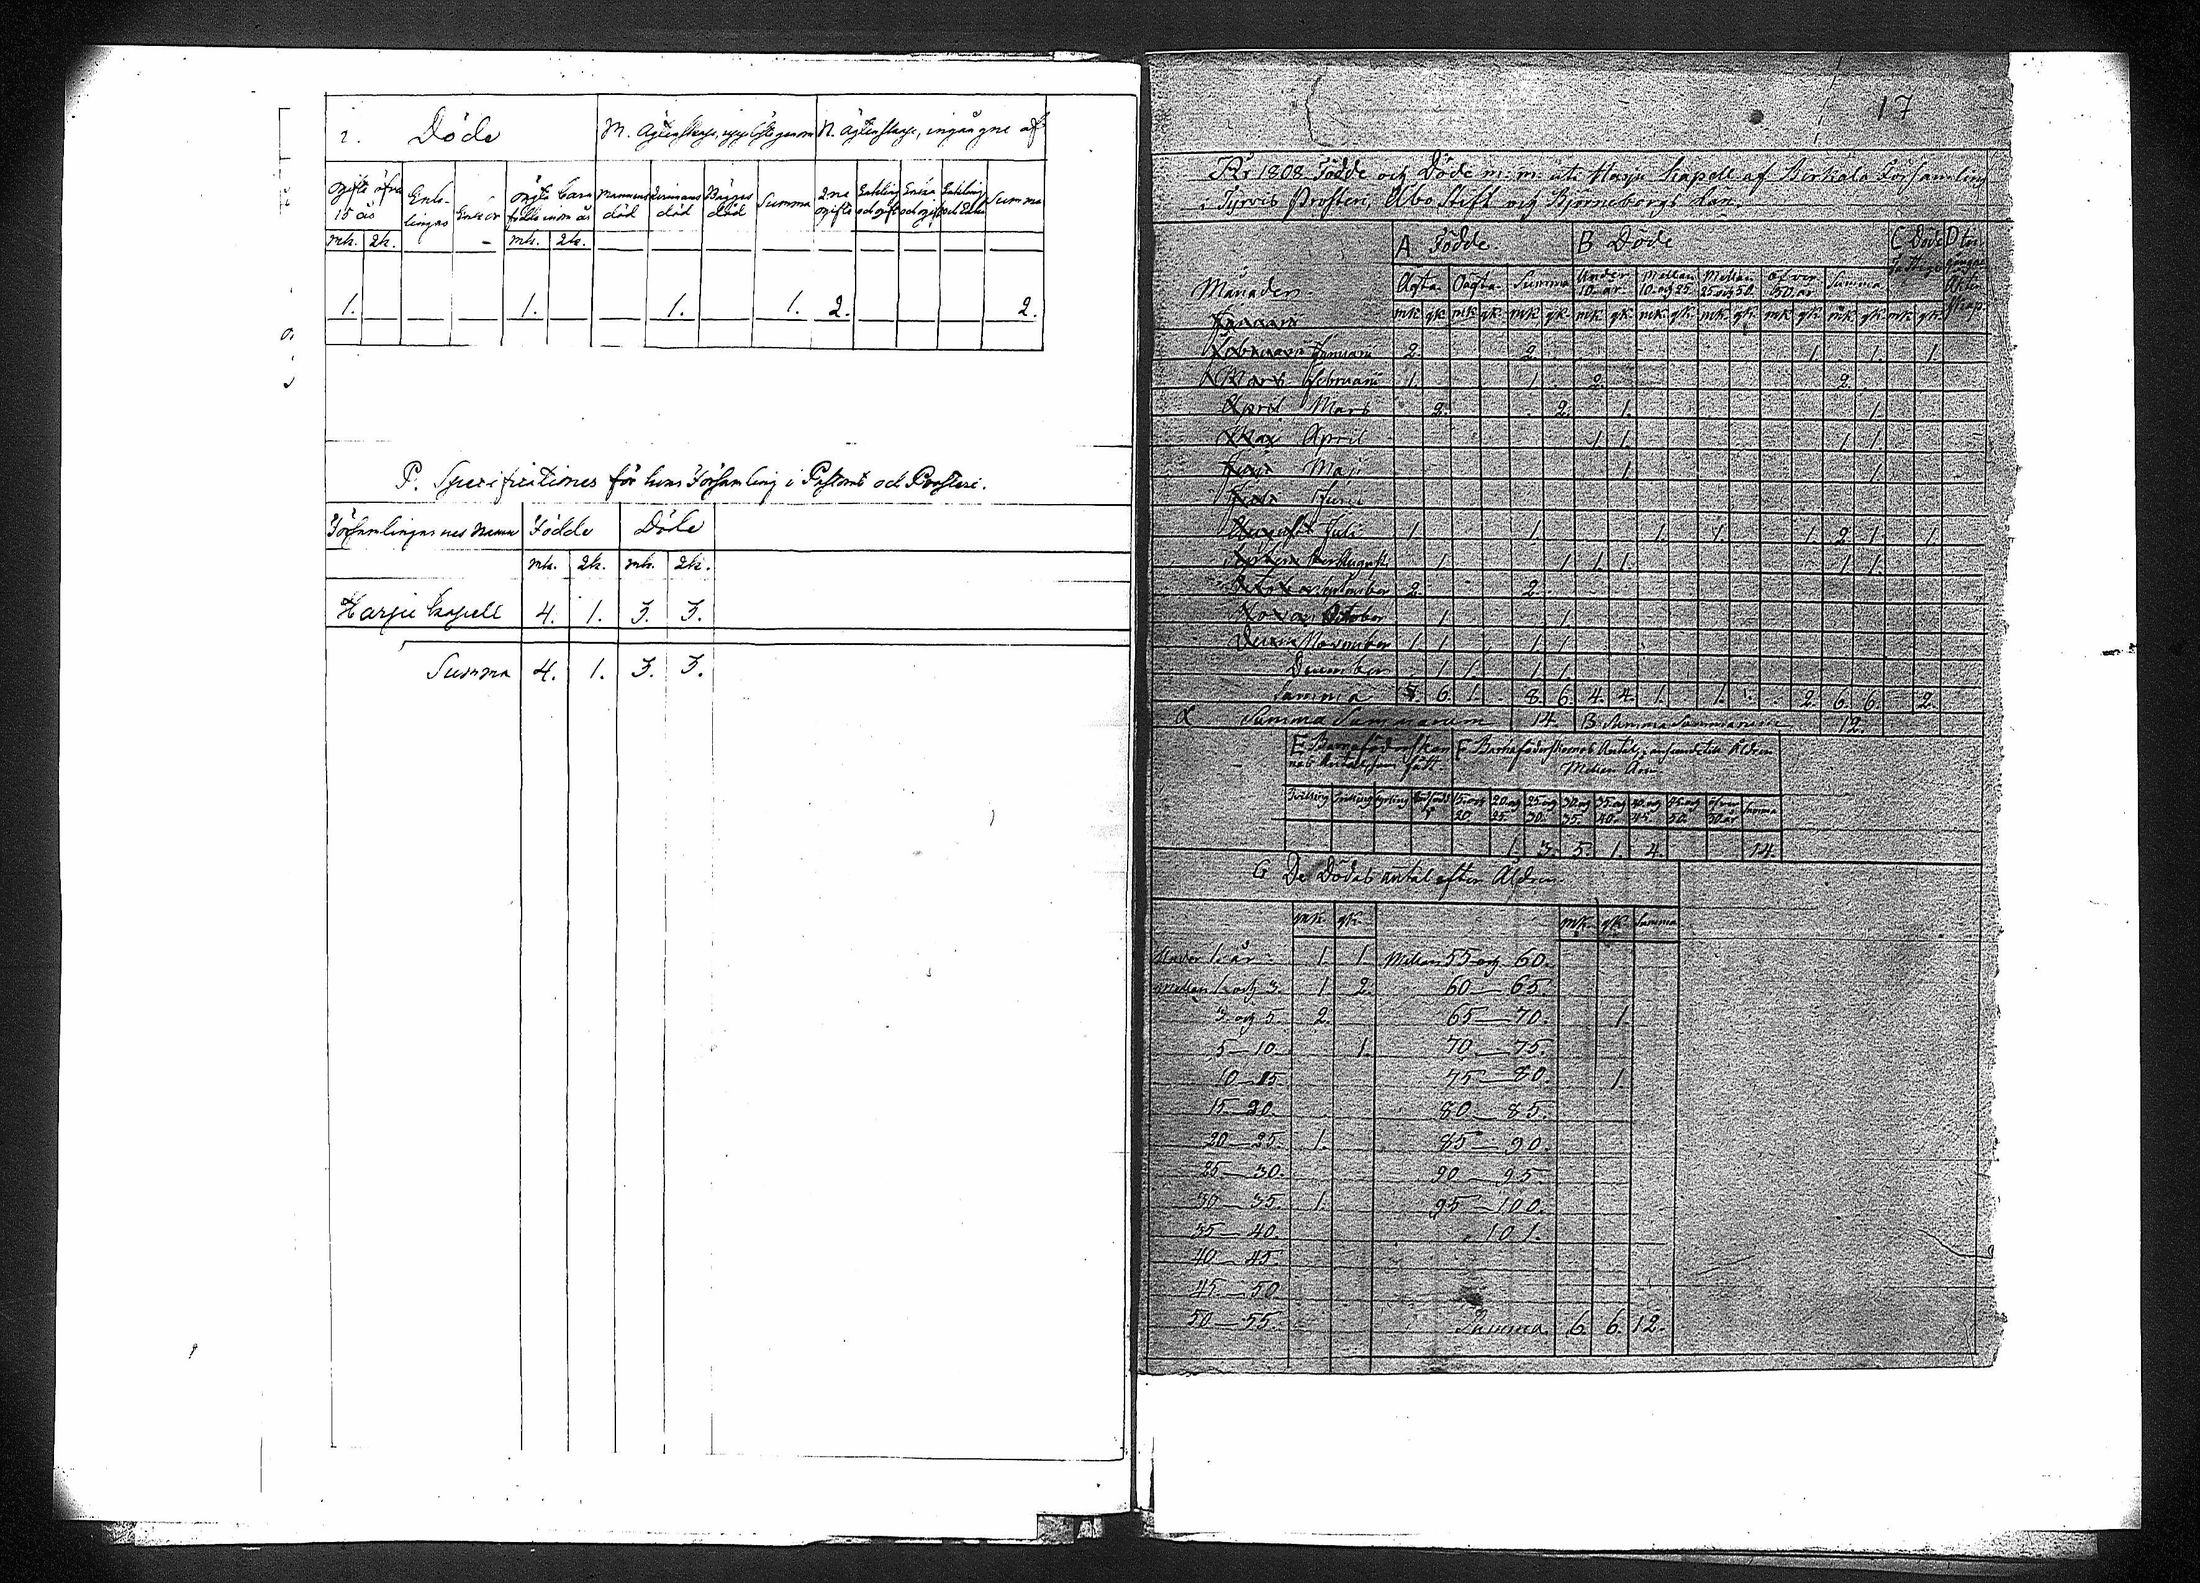 Döde
M. Ägtenskap, upplöste genom
N. Ägtenskap, ingångne af
ogifte öfver 15 år
Enk-lingar
Enkor
Mannens död
Qvinnans död
Bägges död
Summa
2ne ogifte
Enkling och ogift
Enka och ogift
Enkling och Enka
Summa
mk. 2k. mk. 2k.
1. 1. 1. 1. 2. 2.
P. Specificationes för hvar Församling i Pastorat och Prosteri.
Församlingarnes Namn Födde Döde
mk. 2k. mk. 2k.
Harju Capell 4. 1. 3. 3.
Summa 4. 1. 3. 3.
17
År 1808 Födde och Döde m. m. uti Harju Capell af Birkala Församling
Tyrvis Prosteri, Åbo Stift och Björneborgs Län.
A Födde B Döde C Döde
Månader.
Ägta. Oägta. Summa Under 10 år. Mellan 10 och 25. Mellan 25 och 50. öfver 50. år Summa
mk. qk. mk. qk. mk. qk. mk. qk. mk. qk. mk. qk. mk. qk. mk. qk. mk. qk.
Januarii
Februarii Januarii 2. 2. 1. 1. 1.
Mars Februarii 1. 1. 2. 2.
April Mars 2. 2. 1. 1.
Maj April 1 1. 1 1.
Junii Maji 1. 1.
Juli Junii
August Juli 1 1 1. 1. 1 2. 1. 1.
Septem August. 1 1 1. 1. 1 1.
October September 2. 2.
Novem October 1 1.
Decem November 1 1 1 1
December 1 1. 1 1.
Summa 6. 1. 8. 6. 4. 4. 1. 1. 2. 6. 6. 2.
Summa Summarum 14. B Summa Summarum 12.
E Barnaföderskornas Antal, som fått
F Barnaföderskornas Antal, i anseende till Åldren
Mellan Åren
Tvilling Trilling Fyrling 15. och 20. 20. och 25. 25 och 30. 30. och 35. 35 och 40. 40. och 45. 45. och 50. öfver 50 år Summa
1. 3. 5. 1. 4. 14.
G De Dödas antal efter Åldren
mk. qk. mk. qk. Summa
Under 1. år 1. 1. Mellan 55 och 60.
Mellan 1. och 3. 1. 2. 60 — 65.
3 och 5. 2. 65 — 70. 1.
5 — 10. 1. 70 — 75.
10 — 15. 75 — 80. 1.
15 — 20. 80 — 85.
20 — 25. 1. 85 — 90.
25 — 30. 90 — 95.
30 — 35. 1. 95 — 100.
35 — 40. 101.
40 — 45.
45. — 50.
50 — 55. Summa 6. 6. 12.